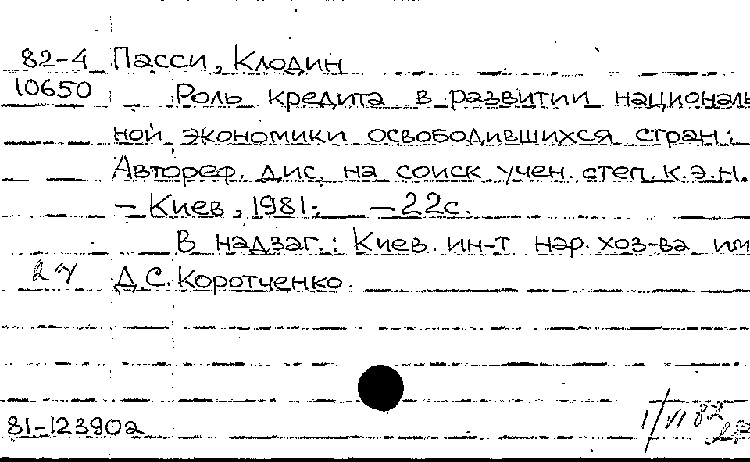 82-4 Пасси, Клодин
10650 Роль кредита в развитии националь
ной экономики освободившихся стран:
Автореф. дис. на соиск. учен. степ. к.э.н.
– Киев, 1981. – 22с.
В надзаг.: Киев. ин-т нар. хоз-ва им
Д.С. Коротченко.
81-12390а
1/VI 82